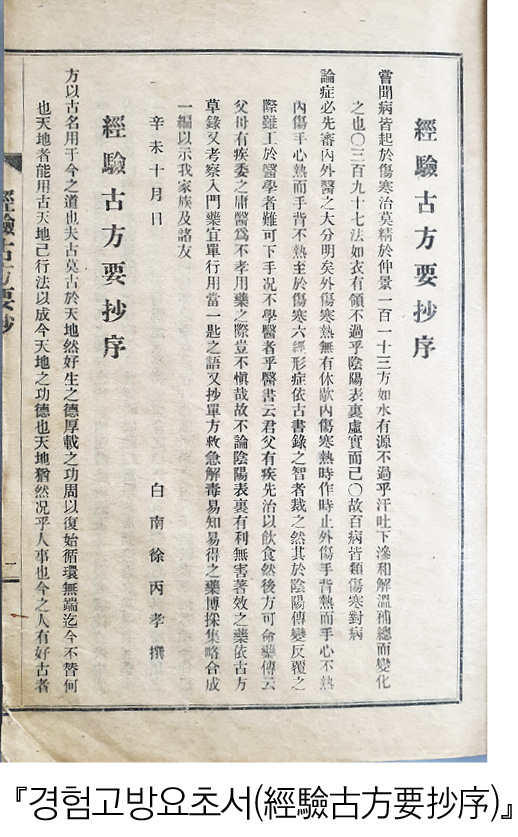 經驗古方要抄序
嘗聞病皆起於傷寒治莫精於仲景一百一十三方如水有源不過乎汗吐下滲和解溫補總而變化
之也〇三百九十七法如衣有領不過乎陰陽表裏虛實而已〇故百病皆類傷寒對病
論症必先審內外醫之大分明矣外傷寒熱無有休歇內傷寒熱時作時止外傷手背熱而手心不熱
內傷手心熱而手背不熱至於傷寒六經形症依古書錄之智者裁之然其於陰陽傳變反覆之
際雖工於醫學者難可下手况不學醫者乎醫書云君父有疾先治以飮食然後方可命藥傳云
父母有疾委之庸醫爲不孝用藥之際豈不愼哉故不論陰陽表裏有利無害著效之藥依古方
草錄又考察入門藥宜單行用當一匙之語又抄單方救急解毒易知易得之藥博採集略合成
一編以示我家族及諸友
辛未十月日
白南徐丙孝撰
經驗古方要抄序
方以古名用于今之道也夫古莫古於天地然好生之德厚載之功周以復始循環無端迄今不替何
也天地者能用古天地己行法以成今天地之功德也天地猶然况乎人事也今之人有好古者
經驗古方要抄
一
『경험고방요초서(經驗古方要抄序)』